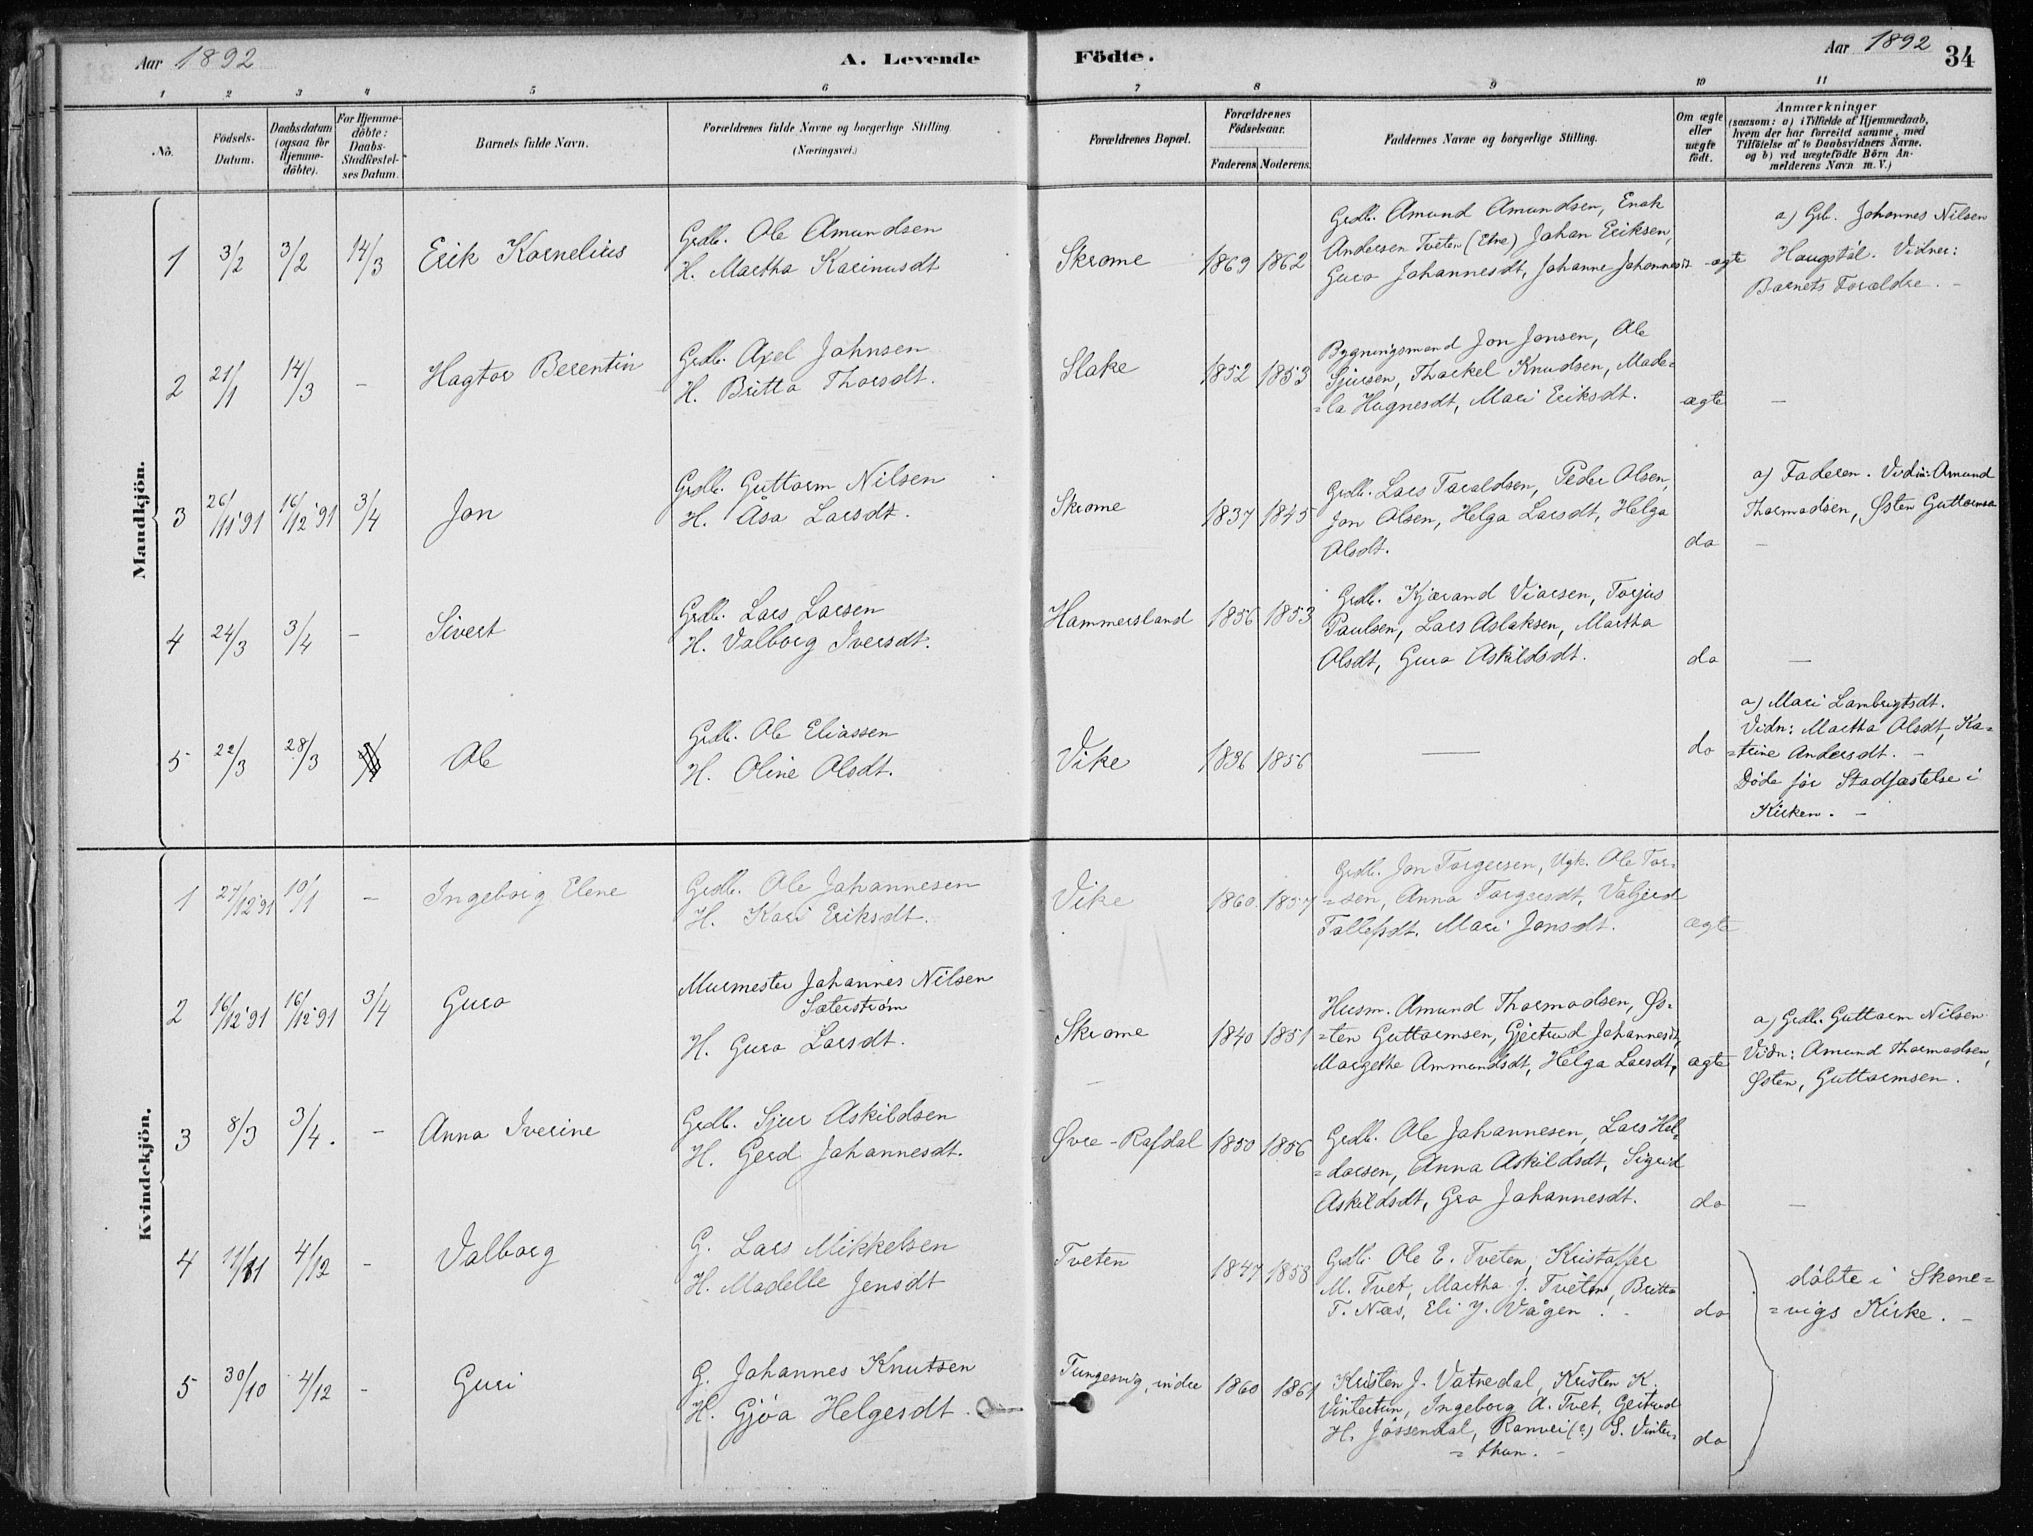 Aar 1892
A. Levende
Födte.
Aar 1892
34
1 2 3 4 5 6 7 8 9 10 11
No.
Födsels-
Datum.
Daabsdatum
(ogsaa for
Hjemme-
döbte).
For Hjemme-
döbte:
Daabs-
Stadfæstel-
ses Datum.
Barnets fulde Navn.
Forældrenes fulde Navne og borgerlige Stilling
(Næringsvei.)
Forældrenes Bopæl.
Forældrenes
Födselsaar.
Faderens. Moderens.
Faddernes Navne og borgerlige Stilling.
Om ægte
eller
uægte
født.
Anmærkninger
(saasom: a) i Tilfælde af Hjemmedaab,
hvem der har forrettet samme, med
Tilföielse af to Daabsvidners Navne.
og b) ved uægtefödte Börn An-
melderens Navn m. V.)
Mandkjön.
1 3/2 3/2 14/3 Erik Kornelius
Grdb. Ole Amundsen
H. Martha Karinusdt
Skrome 1869 1862
Grdb. Amund Amundsen, Enok
Andersen Tveten (Etne) Johan Eriksen,
Guro Johannesdt, Johanne Johannesdt
ægte
a) Grb. Johannes Nilsen
Haugstøl. Vidner:
Barnets Forældre. -
2 21/1 14/3 - Hagtor Berentin
Grdb. Axel Johnsen
H. Britta Thorsdt.
Slake 1852 1853
Bygningsmand Jon Jonsen, Ole
Sjursen, Thorkel Knudsen, Made-
=la Hognesdt, Mari Eriksdt.
ægte -
3 26/11'91 16/12'91 3/4 Jon
Grdb. Guttorm Nilsen
H. Åsa Larsdt.
Skrome 1837 1845
Grdb. Lars Taraldsen, Peder Olsen,
Jon Olsen, Helga Larsdt, Helga
Olsdt.
do
a) Faderen. Vidn: Amund
Thormodsen, Østen Guttormsen
-
4 24/3 3/4 - Sivert
Grdb. Lars Larsen
H. Valborg Iversdt.
Hammersland 1856 1853
Grdb. Kjærand Viarsen, Torjus
Paulsen, Lars Aslaksen, Martha
Olsdt, Guro Askildsdt.
do -
5 22/3 28/3 Ole
Grdb. Ole Eliassen
H. Oline Olsdt.
Vike 1836 1856
-
do
a) Mari Lambrigtsdt.
Vidn: Martha Olsdt, Ka=
=trine Andersdt. -
Døde før Stadfæstelse i
Kirken. -
Kvindekjön.
1 27/12'91 10/1 - Ingeborg Elene
Grdb. Ole Johannesen
H. Kari Eriksdt.
Vike 1860 1857
Grdb. Jon Torgersen, Ugk. Ole Tor-
=sen, Anna Torgersdt, Valgerd
Tollefsdt. Mari Jonsdt.
ægte
2 16/12'91 16/12'91 3/4 Guro
Murmester Johannes Nilsen
Sæterstrøm
H. Guro Larsdt.
Skrome 1840 1851
Husm. Amund Thormodsen, Øs-
=ten Guttormsen, Gjertrud Johannesdt,
Margethe Ammundsdt, Helga Larsdt.
ægte
a) Grdb. Guttorm Nilsen
Vidn: Amund Thormodsen,
Østen, Guttormsen.
3 8/3 3/4. - Anna Iverine
Grdb. Sjur Askildsen
H. Gerd Johannesdt.
Øvre-Rafdal 1850 1856
Grdb. Ole Johannesen, Lars Hal-
=dorsen, Anna Askildsdt, Sigrid
Askildsdt, Gro Johannesdt.
do -
4 11/11 4/12 - Valborg
G. Lars Mikkelsen
H. Madelle Jensdt
Tveten 1847 1858
Grdb. Ole E. Tveten, Kristoffer
M. Tvet, Martha J. Tveten, Britta
T. Næs, Eli J. Vågen.
do
døbte i Skone=
=vigs Kirke. -
5 30/10 4/12 - Guri
G. Johannes Knutsen
H. Gjøa Helgesdt.
Tungesvig, indre 1860 1861
Kristen J. Vatnedal, Kristen K.
Vintertun, Ingeborg A. Tvet, Gertrud
H. Jøssendal, Ranvei (?) S. Vinter-
=thun. -
do